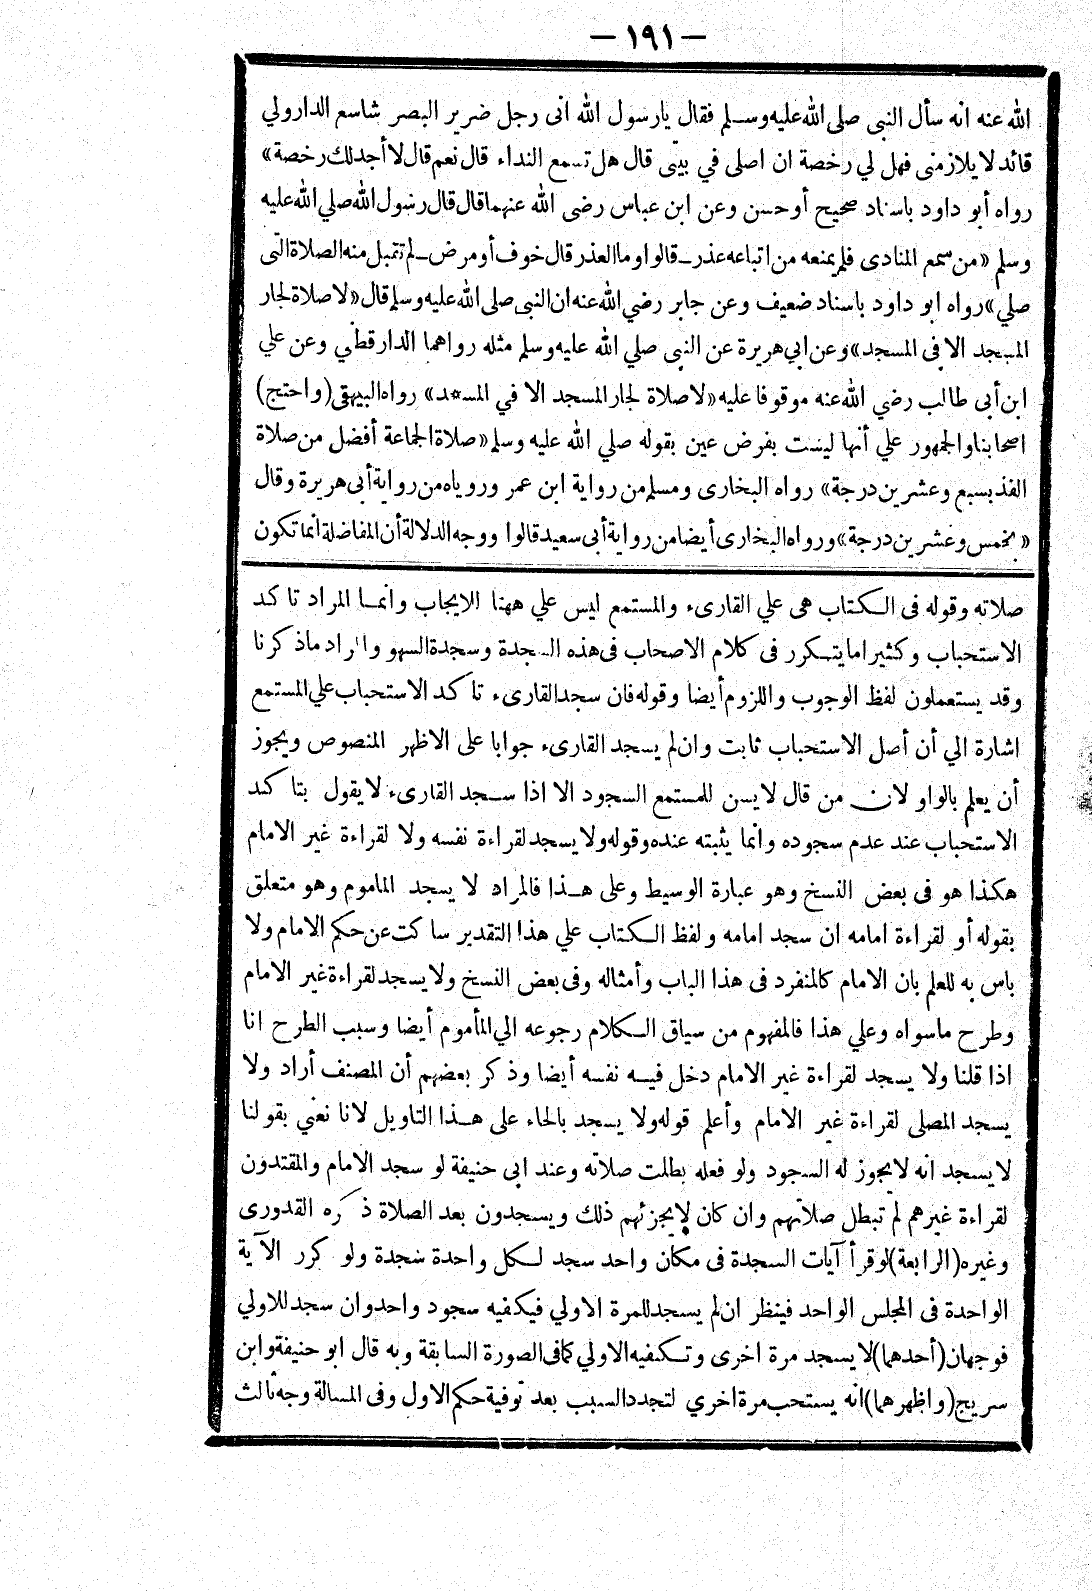 — ١٩١ —
الله عنه انه سأل النبى صلى الله عليه وسلم فقال يارسول الله انى رجل ضرير البصر شاسع الدار ولي
قائد لا يلازمنى فهل لي رخصة ان اصلى في بيتى قال هل تسمع النداء قال نعم قال لا أجد لك رخصة»
رواه أبو داود باسناد صحيح أو حسن وعن ابن عباس رضى الله عنهما قال قال رسول الله صلي الله عليه
وسلم «من سمع المنادى فلم يمنعه من اتباعه عذر ـ قالوا وما العذر قال خوف أو مرض ـ لم تقبل منه الصلاة التى
صلي» رواه ابو داود باسناد ضعيف وعن جابر رضي الله عنه ان النبى صلى الله عليه وسلم قال «لا صلاة لجار
المسجد الا فى المسجد» وعن ابي هريرة عن النبى صلي الله عليه وسلم مثله رواهما الدارقطني وعن علي
ابن أبى طالب رضي الله عنه موقوفا عليه «لا صلاة لجار المسجد الا في المسجد» رواه البيهقى (واحتج)
اصحابنا والجمهور علي أنها ليست بفرض عين بقوله صلي الله عليه وسلم «صلاة الجماعة أفضل من صلاة
الفذ بسبع وعشرين درجة» رواه البخارى ومسلم من رواية ابن عمر وروياه من رواية أبى هريرة وقال
«بخمس وعشرين درجة» ورواه البخارى أيضا من رواية أبى سعيد قالوا ووجه الدلالة أن المفاضلة انما تكون
صلاته وقوله فى الكتاب هى علي القارىء والمستمع ليس علي ههنا الايجاب وانما المراد تاكد
الاستحباب وكثيرا ما يتكرر فى كلام الاصحاب فى هذه السجدة وسجدة السهو والمراد ما ذكرنا
وقد يستعملون لفظ الوجوب واللزوم أيضا وقوله فان سجد القارىء تاكد الاستحباب علي المستمع
اشارة الي أن أصل الاستحباب ثابت وان لم يسجد القارىء جوابا على الاظهر المنصوص ويجوز
أن يعلم بالواو لان من قال لا يسن للمستمع السجود الا اذا سجد القارىء لا يقول بتاكد
الاستحباب عند عدم سجوده وانما يثبته عنده وقوله ولا يسجد لقراءة نفسه ولا لقراءة غير الامام
هكذا هو فى بعض النسخ وهو عبارة الوسيط وعلى هذا فالمراد لا يسجد الماموم وهو متعلق
بقوله أو لقراءة امامه ان سجد امامه ولفظ الكتاب علي هذا التقدير ساكت عن حكم الامام ولا
باس به للعلم بان الامام كالمنفرد فى هذا الباب وأمثاله وفى بعض النسخ ولا يسجد لقراءة غير الامام
وطرح ما سواه وعلي هذا فالمفهوم من سياق الكلام رجوعه الي المأموم أيضا وسبب الطرح انا
اذا قلنا ولا يسجد لقراءة غير الامام دخل فيه نفسه أيضا وذكر بعضهم أن المصنف أراد ولا
يسجد المصلى لقراءة غير الامام وأعلم قوله ولا يسجد بالحاء على هذا التاويل لانا نعني بقولنا
لا يسجد انه لا يجوز له السجود ولو فعله بطلت صلاته وعند ابى حنيفة لو سجد الامام والمقتدون
لقراءة غيرهم لم تبطل صلاتهم وان كان لا يجزئهم ذلك ويسجدون بعد الصلاة ذكره القدورى
وغيره (الرابعة) لو قرأ آيات السجدة فى مكان واحد سجد لكل واحدة سجدة ولو كرر الآية
الواحدة فى المجلس الواحد فينظر ان لم يسجد للمرة الاولي فيكفيه سجود واحد وان سجد للاولي
فوجهان (أحدهما) لا يسجد مرة اخرى وتكفيه الاولي كما فى الصورة السابقة وبه قال ابو حنيفة وابن
سريج (واظهرهما) انه يستحب مرة اخري لتجدد السبب بعد توفية حكم الاول وفى المسالة وجه ثالث